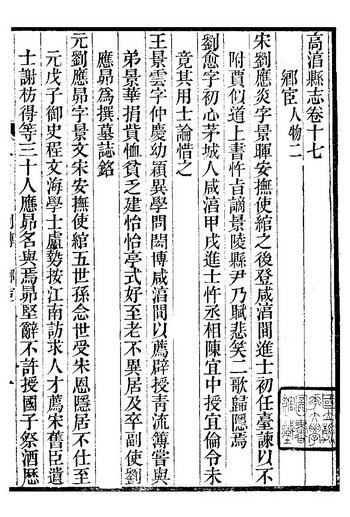 高淳縣志卷十七
鄉宦 人物二
宋劉應炎字景暉安撫使綰之後登咸淳間進士初任臺諫以不
附賈似道上書忤旨謫景陵縣尹乃賦悲笑二歌歸隱焉
劉愈字初心茅城人咸淳甲戌進士忤丞相陳宜中授宜倫令未
竟其用士論惜之
王景雲字仲慶幼穎異學問閎博咸淳間以薦辟授青流簿嘗與
弟景華捐貲恤貧乏建怡怡亭式好至老不異居及卒副使劉
應昴爲撰墓誌銘
元劉應昴字景文宋安撫使綰五世孫念世受朱恩隱居不仕至
元戊子御史程文海學士盧勢按江南訪求人才薦宋舊臣遺
士謝枋得等三十人應昴名與焉昴堅辭不許授國子祭酒歷